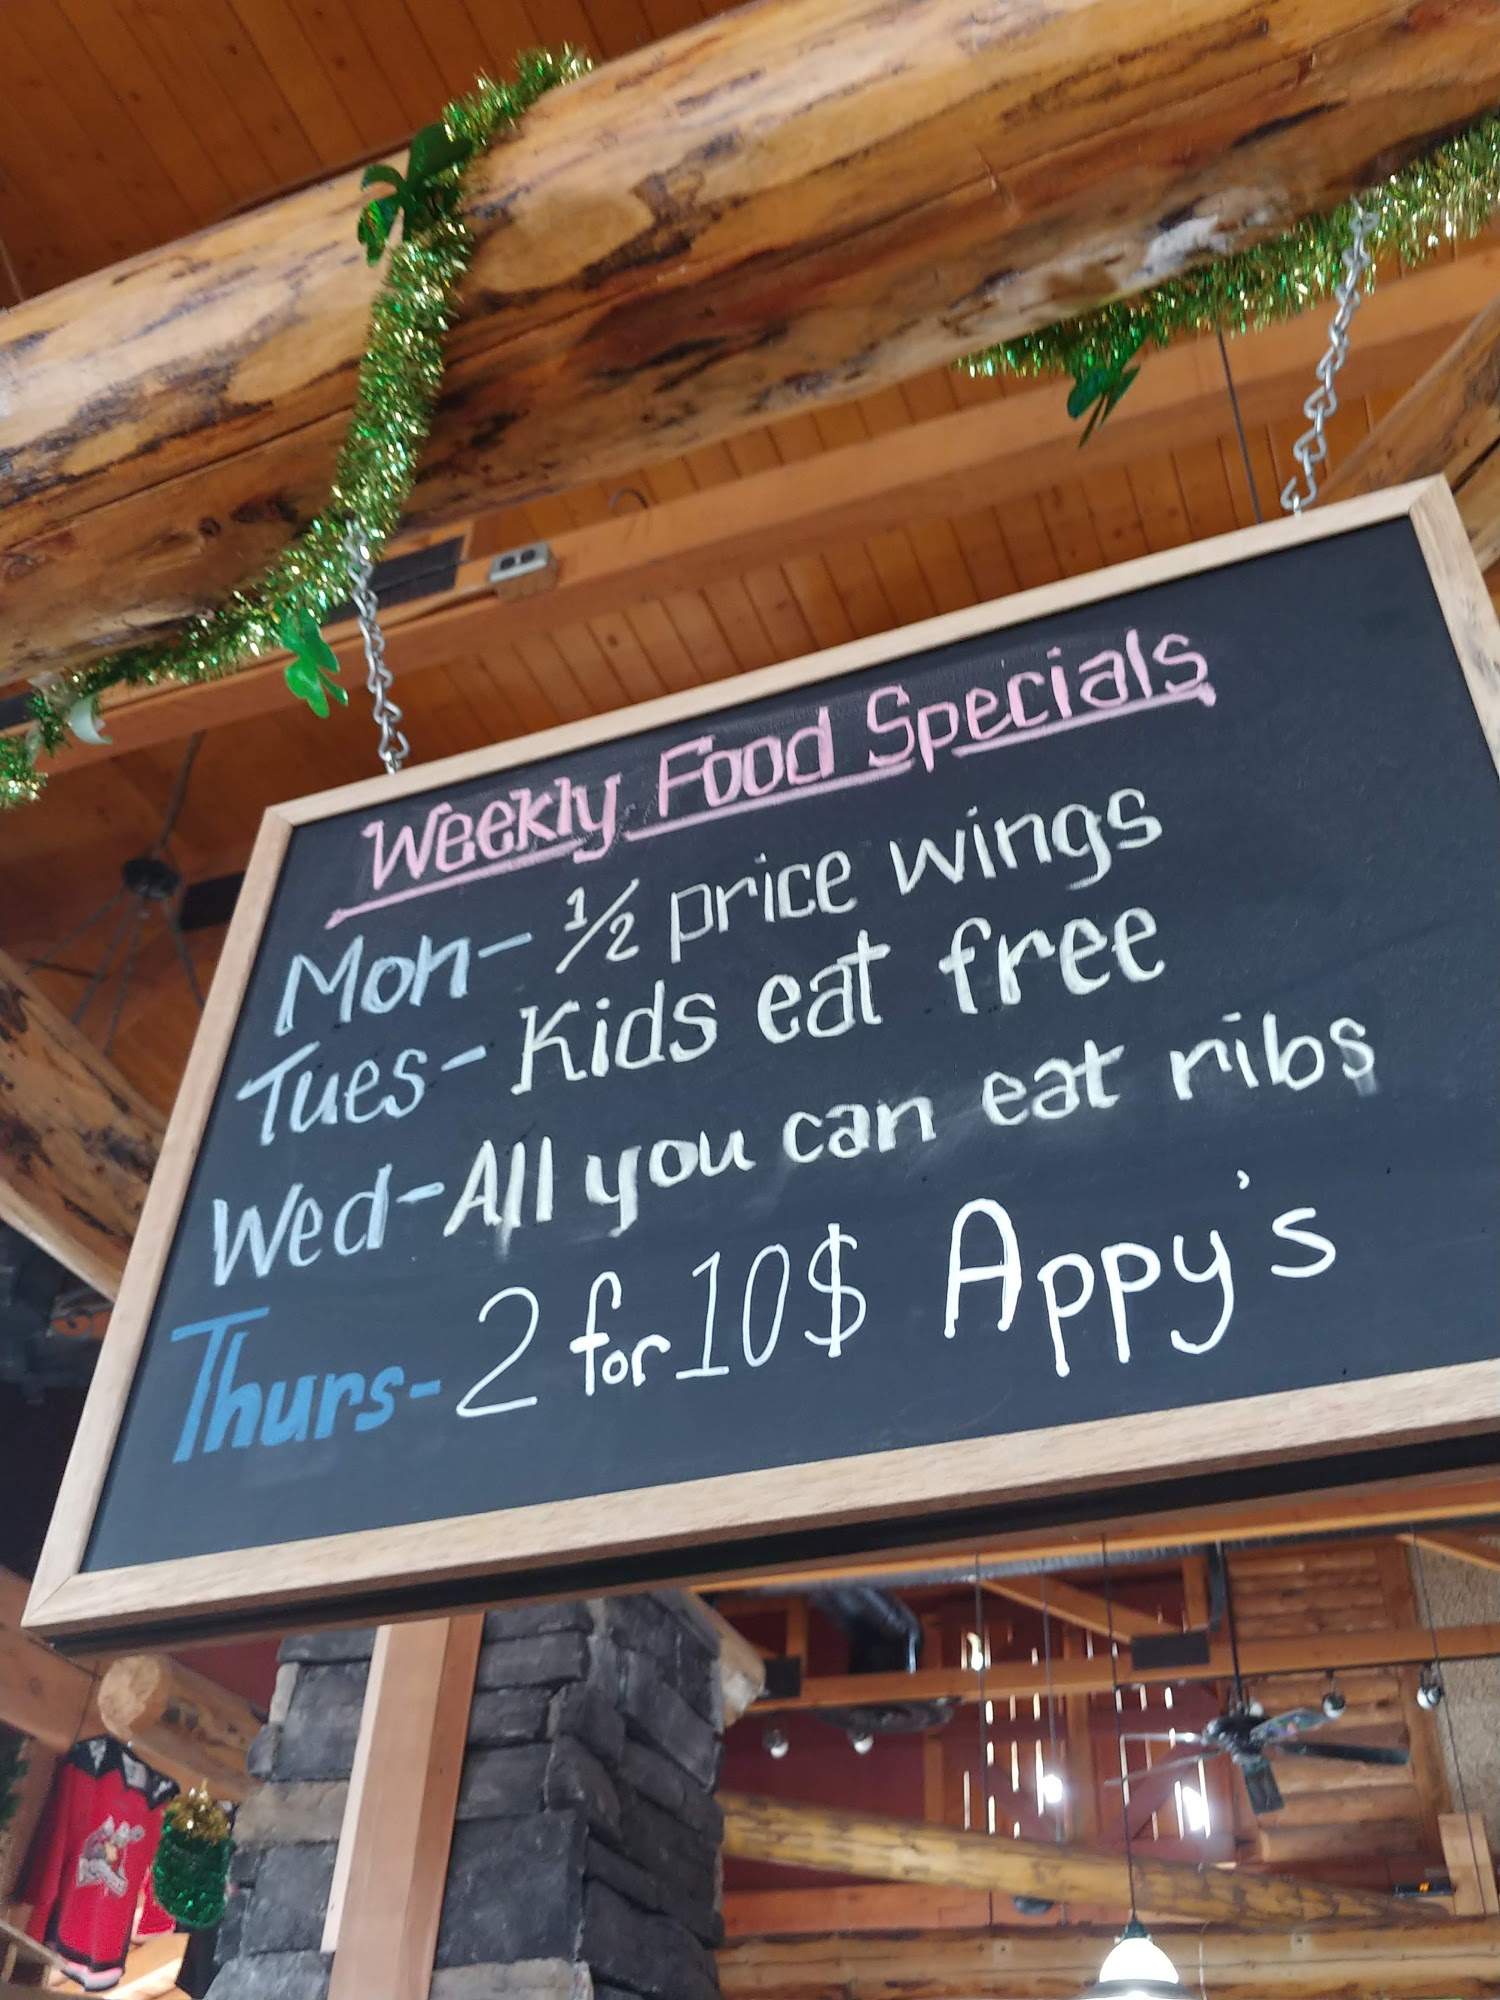 Weekly Food Specials
Mon- 1/2 price wings
Tues- Kids eat free
Wed- All you can eat ribs
Thurs- 2 for 10$ Appy's